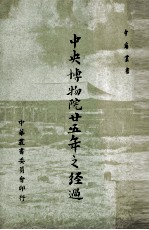 中華叢書
中央博物院廿五年之經過
中華叢書委員會印行